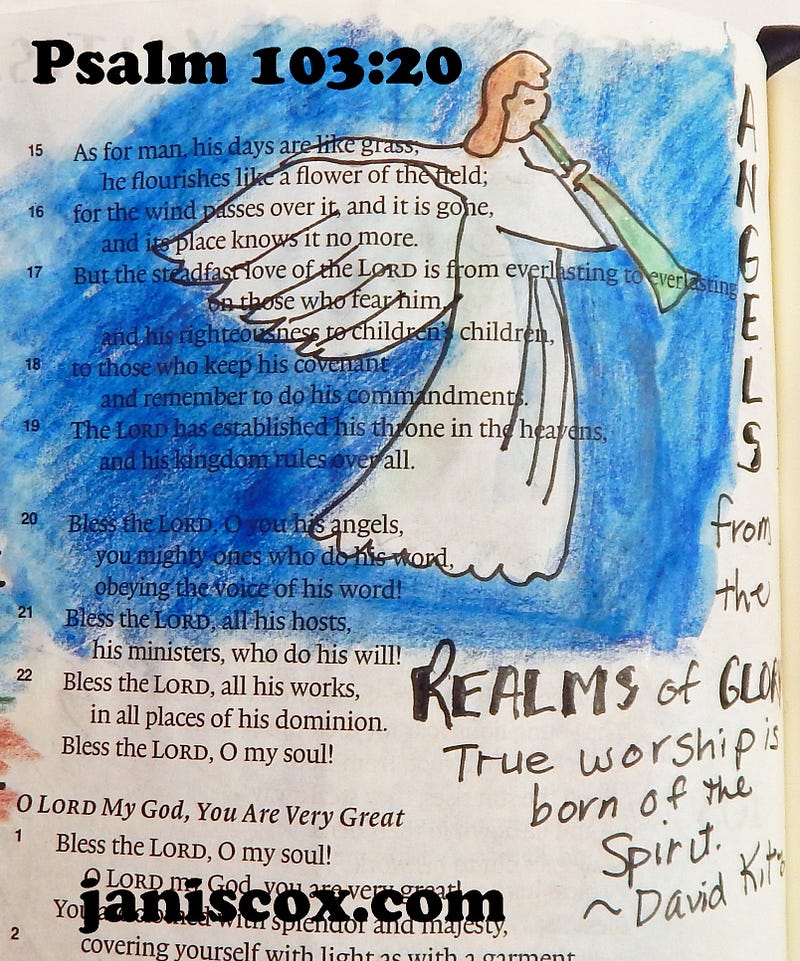 Psalm 103:20
15 As for man, his days are like grass;
he flourishes like a flower of the field;
16 for the wind passes over it, and it is gone,
and its place knows it no more.
17 But the steadfast love of the LORD is from everlasting to everlasting
on those who fear him,
and his righteousness to children's children,
18 to those who keep his covenant
and remember to do his commandments.
19 The LORD has established his throne in the heavens,
and his kingdom rules over all.
20 Bless the LORD, O you his angels,
you mighty ones who do his word,
obeying the voice of his word!
21 Bless the LORD, all his hosts,
his ministers, who do his will!
22 Bless the LORD, all his works,
in all places of his dominion.
Bless the LORD, O my soul!
O LORD My God, You Are Very Great
1 Bless the LORD, O my soul!
O LORD my God, you are very great!
You are clothed with splendor and majesty,
2 covering yourself with light as with a garment
janiscox.com
ANGELS
from
the
REALMS of
True worship is
born of the
Spirit.
~ David